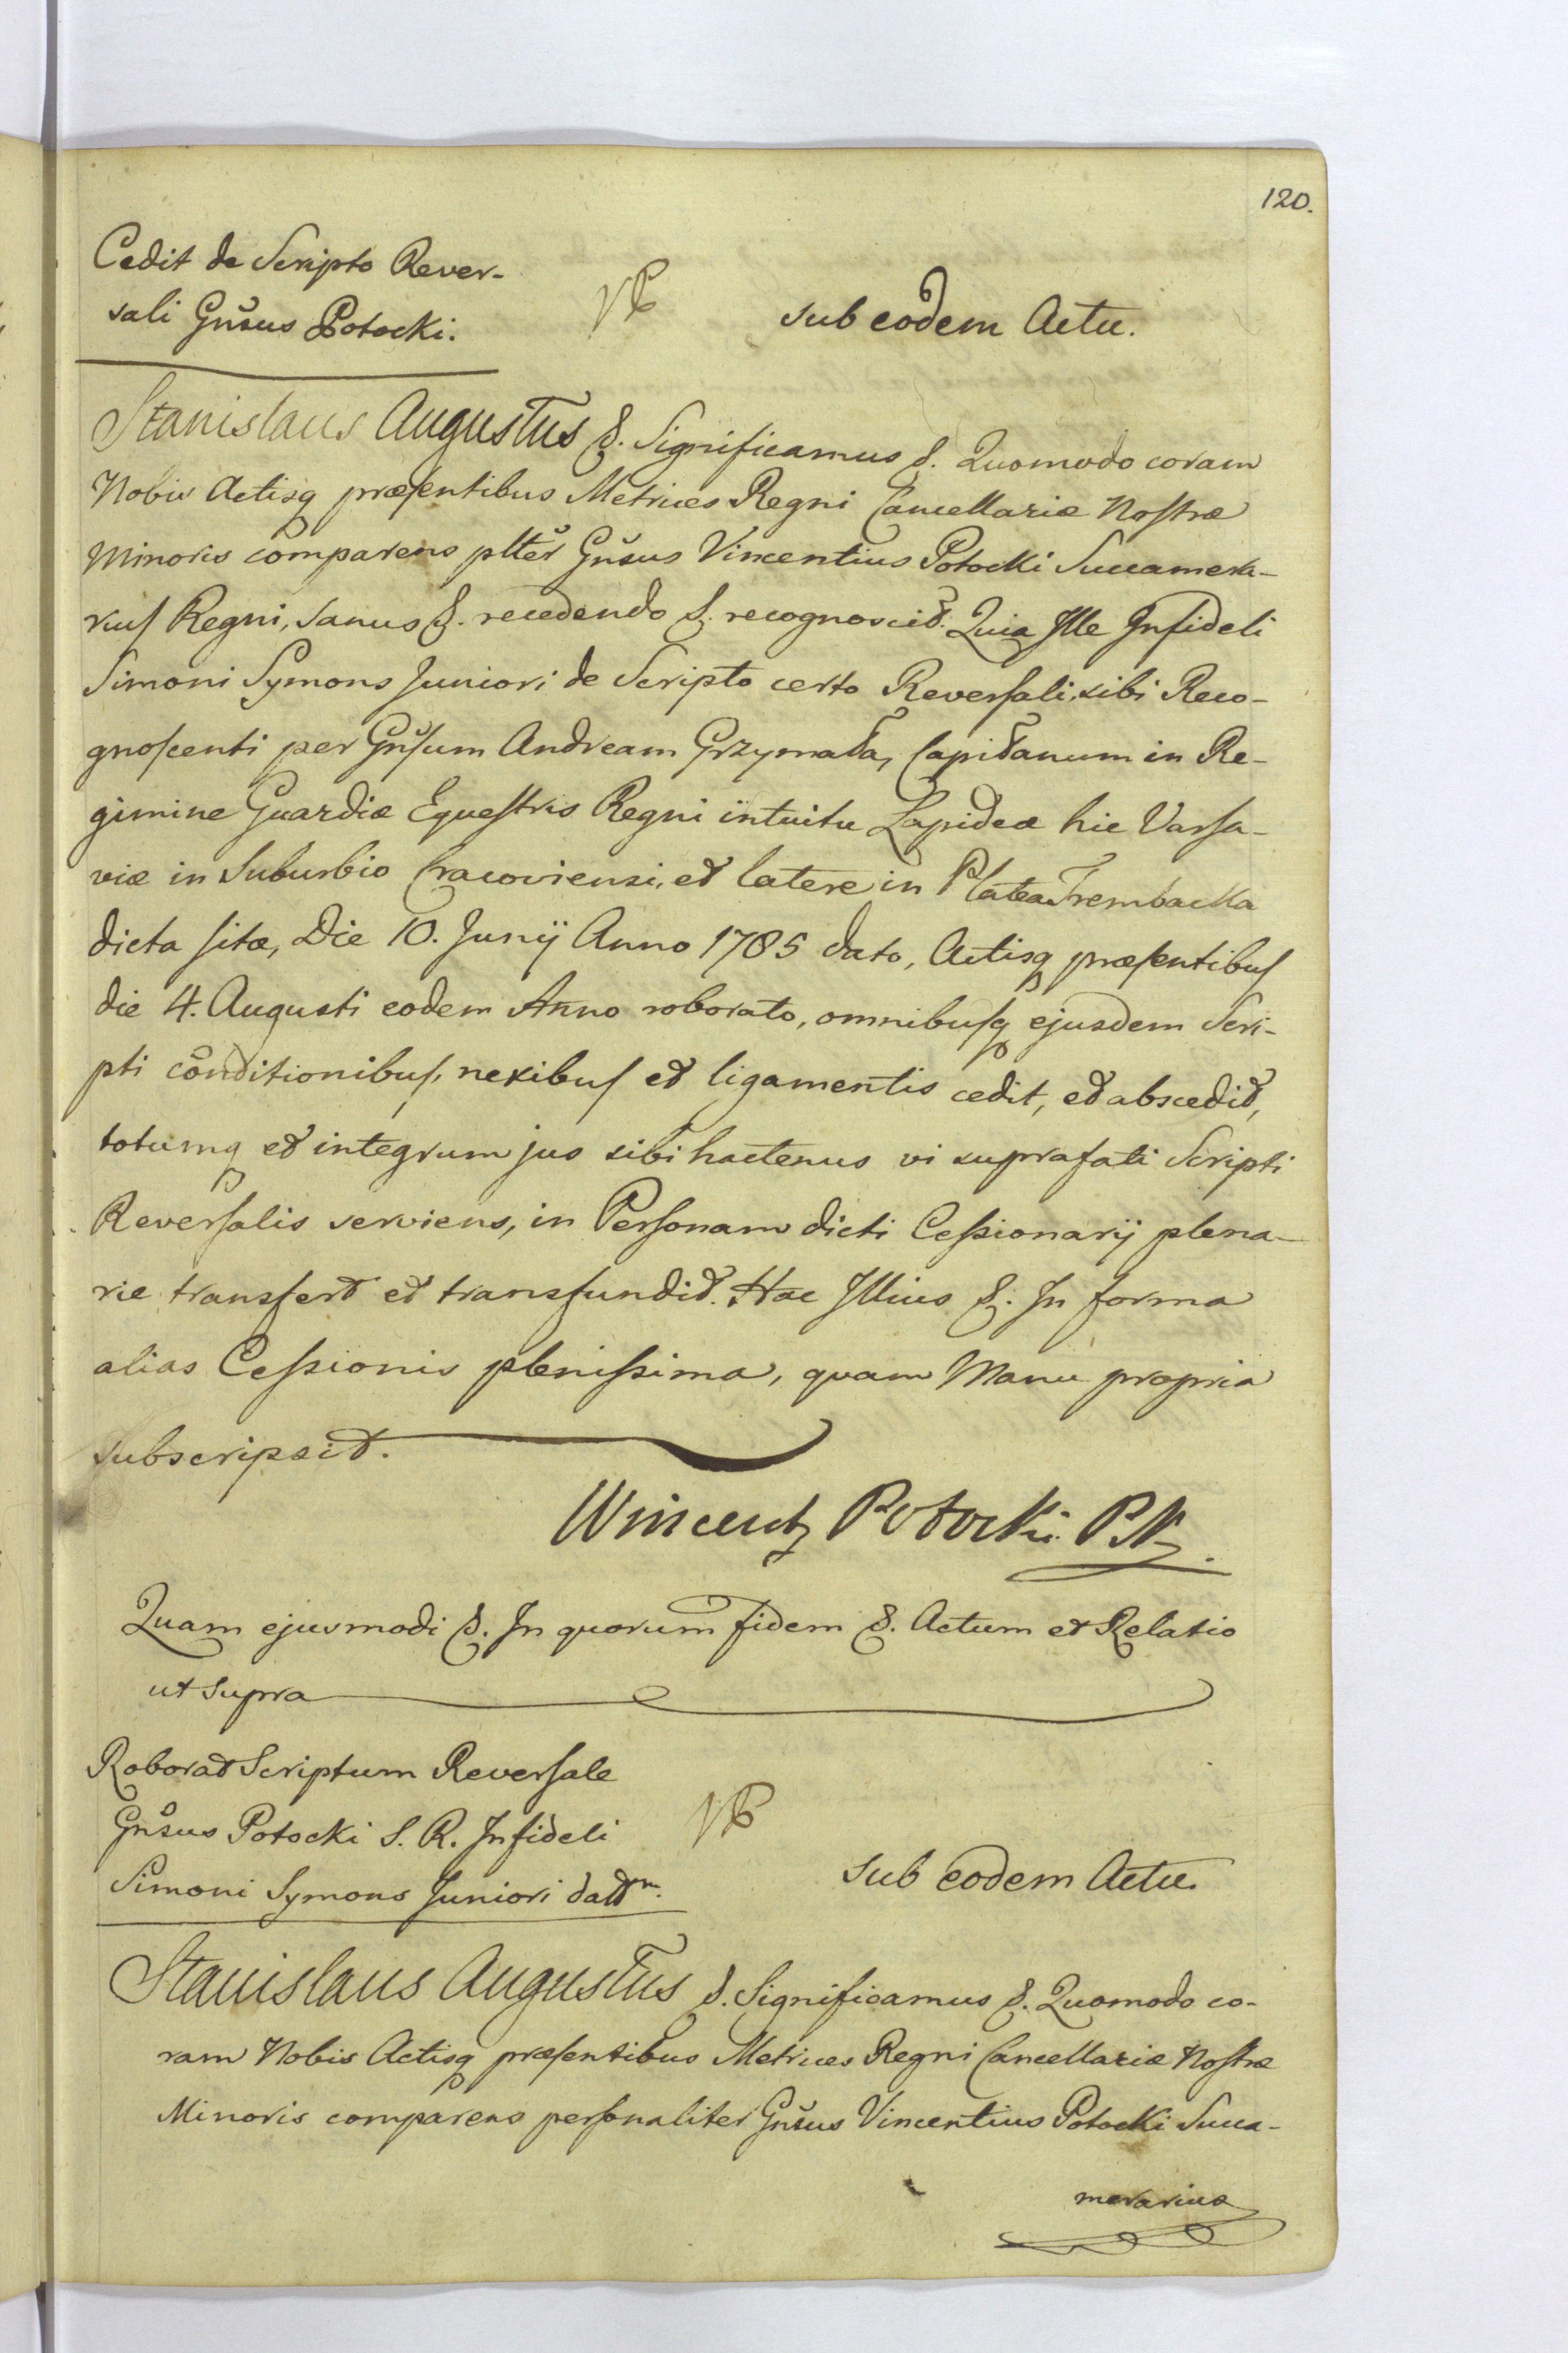 120.
Cedit de Scripto Rever-
sali Gnsus Potocki.
sub eodem Actu.
Stanislaus Augustus &. Significamus &. Quomodo coram
Nobis Actisq præsentibus Metrices Regni Cancellariæ Nostræ
Minoris comparens plter Gnsus Vincentius Potocki Succamera-
rius Regni, sanus &. recedendo &. recognoscit. Quia Ille Infideli
Simoni Symons Juniori de Scripto certo Reversali, sibi Reco-
gnoscenti per Gnsum Andream Grzymała, Capitanum in Re-
gimine Guardiæ Equestris Regni intuitu Lapideæ hic Varsa-
viæ in Suburbio Cracoviensi, et latere in Platea Trembacka
dicta sitæ, Die 10. Junij Anno 1785 dato, Actisq præsentibus
die 4. Augusti eodem Anno roborato, omnibusq ejusdem Scri-
pti conditionibus, nexibus et ligamentis cedit, et abscedit,
totumq et integrum jus sibi hactenus vi suprafati Scripti
Reversalis serviens, in Personam dicti Cessionarij plena-
rie transfert et transfundit. Hac Illius &. In forma
alias Cessionis plenissima, quam Manu propria
subscripsit.
Wincenty Potocki PK.
Quam ejusmodi &. In quorum fidem &. Actum et Relatio
ut supra
Roborat Scriptum Reversale
Gnsus Potocki S. R. Infideli
Simoni Symons Juniori datt m.
sub eodem Actu.
Stanislaus Augustus &. Significamus &. Quomodo co-
ram Nobis Actisq præsentibus Metrices Regni Cancellariæ Nostræ
Minoris comparens personaliter Gnsus Vincentius Potocki Succa-
merarius